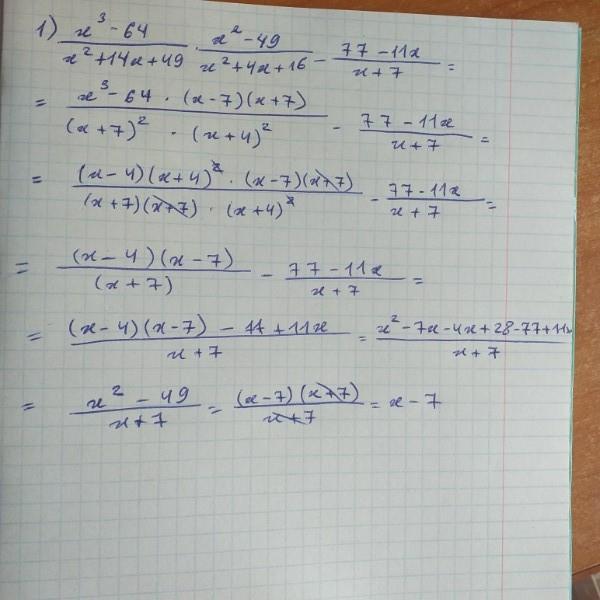 1) (x³ - 64)/(x² + 14x + 49) · (x² - 49)/(x² + 4x + 16) - (77 - 11x)/(x + 7) =
= (x³ - 64 · (x - 7)(x + 7))/((x + 7)² · (x + 4)²) - (77 - 11x)/(x + 7) =
= ((x - 4)(x + 4)² · (x - 7)(x + 7))/((x + 7)(x + 7) · (x + 4)²) - (77 - 11x)/(x + 7) =
= ((x - 4)(x - 7))/((x + 7)) - (77 - 11x)/(x + 7) =
= ((x - 4)(x - 7) - 77 + 11x)/(x + 7) = (x² - 7x - 4x + 28 - 77 + 11x)/(x + 7)
= (x² - 49)/(x + 7) = ((x - 7)(x + 7))/(x + 7) = x - 7